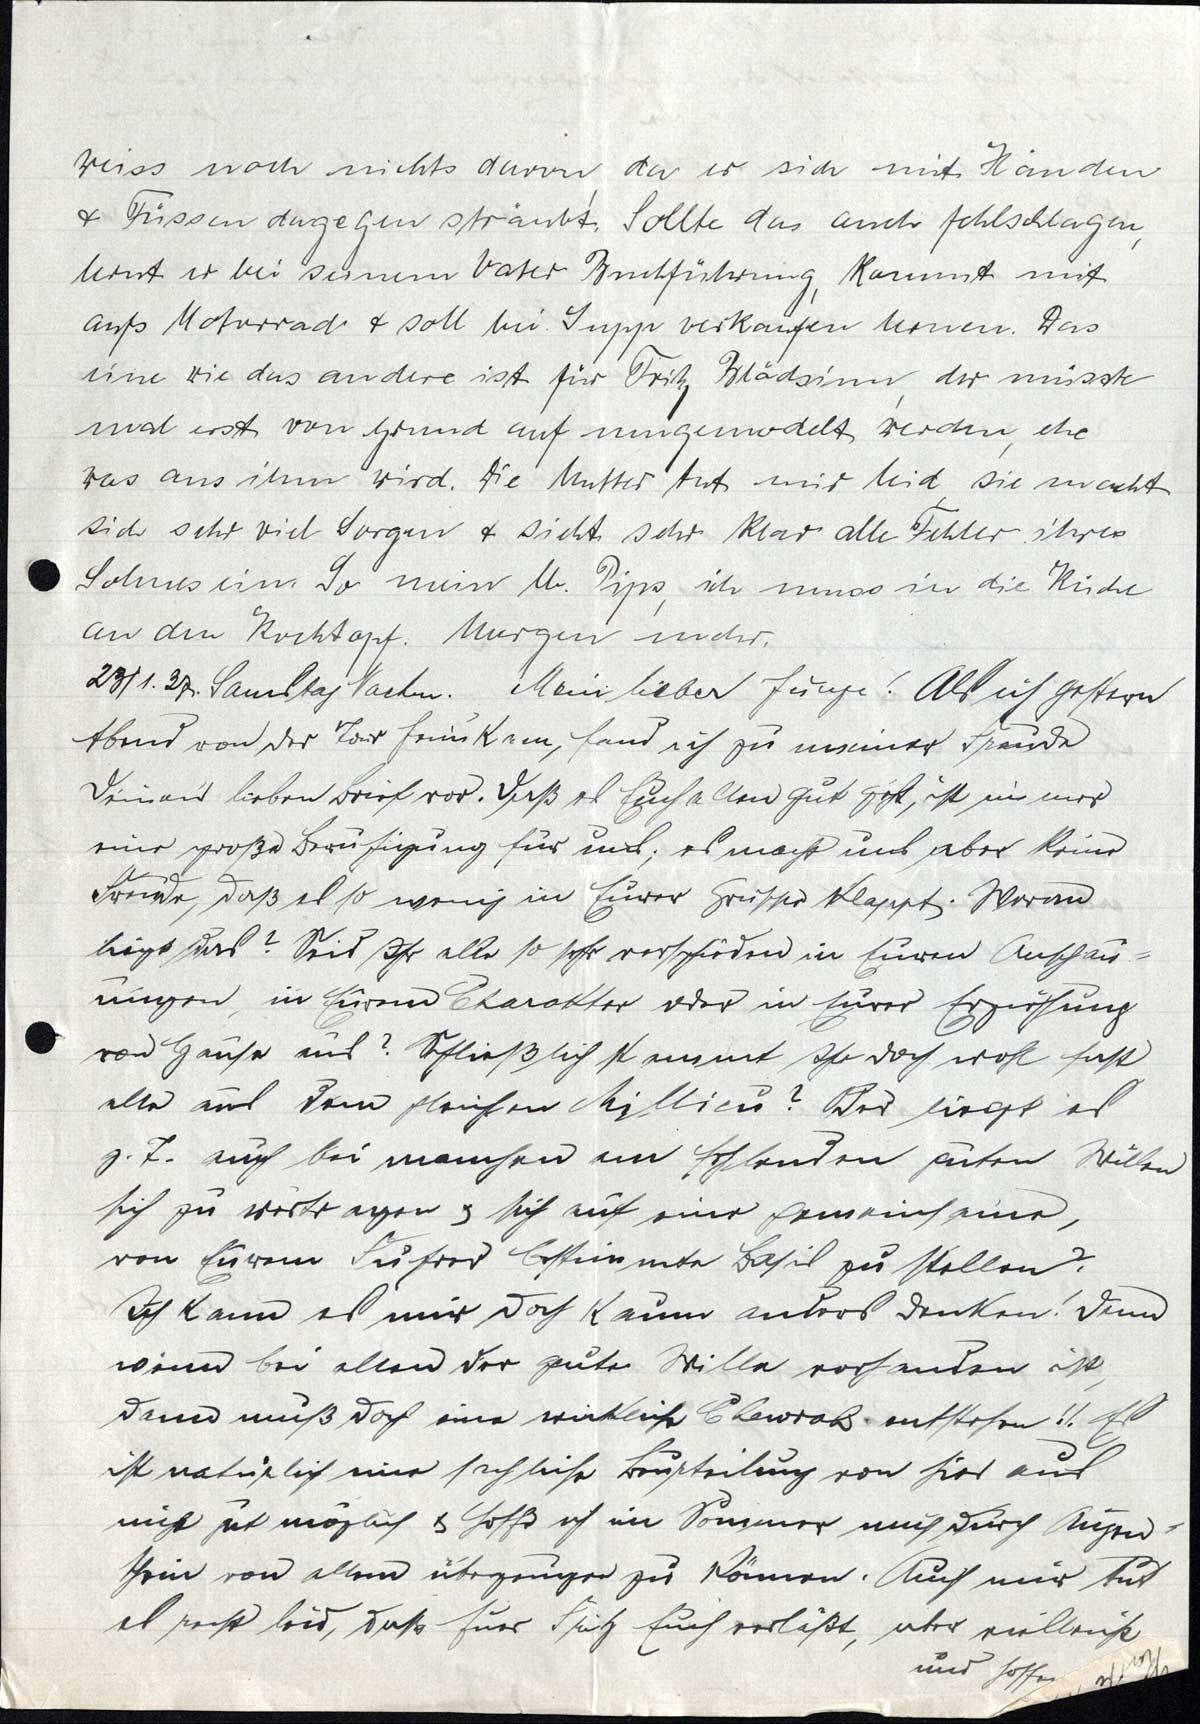 weiss noch nichts davon, da er sich mit Händen
& Füssen dagegen sträubt. Sollte das auch fehlschlagen,
lernt er bei seinem Vater Buchführung, kommt mit
aufs Motorrad & soll bei Supp verkaufen lernen. Das
eine wie das andere ist für Fritz Blödsinn, der müsste
mal erst von Grund auf umgemodelt werden, ehe
was aus ihm wird. Die Mutter tut mir leid, sie macht
sich sehr viel Sorgen & sieht sehr klar alle Fehler ihres
Sohnes ein. So mein lb. Pips, ich muss in die Küche
an den Kochtopf. Morgen mehr.
23/1.37. Samstag Nachm. Mein lieber Junge! Als ich gestern
Abend von der Tour heimkam, fand ich zu meiner Freude
Deinen lieben Brief vor. Daß es Euch allen gut geht, ist immer
eine große Beruhigung für uns; es macht uns aber keine
Freude, daß es so wenig in Eurer Gruppe klappt. Woran
liegt das? Seid Ihr alle so sehr verschieden in Euren Anschau=
ungen, in Eurem Charakter oder in Eurer Erziehung
von Hause aus? Schließlich stammt Ihr doch wohl fast
alle aus dem gleichen Millieu? Oder liegt es
z. T. auch bei manchen am fehlenden guten Willen
sich zu vertragen & sich auf eine gemeinsame,
von Eurem Führer bestimmte Basis zu stellen?
Ich kann es mir doch kaum anders denken! Denn
wenn bei allen der gute Wille vorhanden ist,
dann muß doch eine wirkliche Chewrah entstehen!! Es
ist natürlich eine sachliche Beurteilung von hier aus
nicht gut möglich & hoffe ich im Sommer mich durch Augen=
schein von allem überzeugen zu können. Auch mir tut
es recht leid, daß Euer Fritz Euch verläßt, aber vielleicht
und hoffe